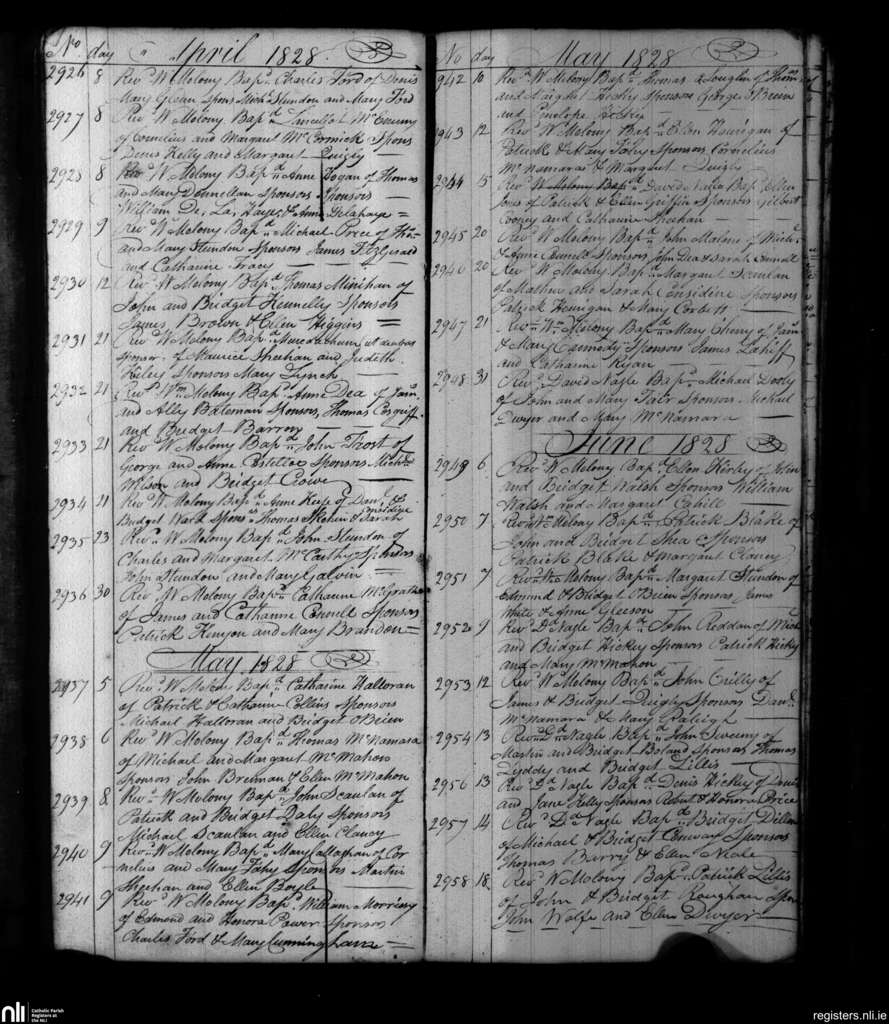 No day April 1828
2926 8 Revd. W Molony Bapd. Charles Ford of Denis
Mary Glean Spons Michl Hundon and Mary Ford
2927 8 Revd. W Molony Bapd.
of Cornelius and Margaret McCormick Spons
Denis Kelly and Margaret Quigly
2928 8 Revd W Molony Bapd Anne Hogan of Thomas
and Mary Donnellan Sponsors Sponsors
William De, La, Hayes, & Anne Delahaye =
2929 9 Revd W Molony Bapd Michael
and Mary Hundon Sponsors James FitzGerald
and Catharine
2930 12 Revd W Molony Bapd Thomas Minihan of
John and Bridget Kennelly Sponsors
James, Brown & Ellen Higgins =
2931 21 Revd W Molony Bapd
of Maurice Sheehan and Judith
Sponsors Mary Lynch
2932 21 Revd. Wm Molony Bapd Anne Dea of
and Ally Bateman Sponsors, Thomas
and Bridget Barron
2933 21 Revd W Molony Bapd John Frost of
George and Anne Sponsors Michl.
Wilson and Bridget Crowe
2934 21 Revd. W Molony Bapd Anne of Danl. &
Bridget Ward Spons Thomas & Sarah
2935 23 Revd W Molony Bapd John Hundon of
Charles and Margaret McCarthy Sponsors
John Hundon and Mary Galvin
2936 30 Revd W Molony Bapd Catharine McGrath
of James and Catharine Connell Sponsors
Patrick Kenyon and Mary Brandon =
May 1828
2937 5 Revd. W Molony Bapd Catharine Halloran
of Patrick & Catharine Collins Sponsors
Michael Halloran and Bridget OBrien
2938 6 Revd W Molony Bapd Thomas McNamara
of Michael and Margaret McMahon
Sponsors John Brennan & Ellen McMahon
2939 8 Revd W Molony Bapd John Scanlan of
Patrick and Bridget Daly Sponsors
Michael Scanlan and Ellen Clancy
2940 9 Revd W Molony Bapd Mary Callaghan of Cor
nelius and Mary Fahy Sponsors Martin
Sheehan and Ellen Boyle
2941 9 Revd W Molony Bapd William
of Edmond and Honora Power Sponsors
Charles Ford & Mary Cunningham =
No day May 1828
942 10 Revd. W Molony Bapd Thomas of Thoms
and Margaret Sponsors George OBrien
and Penelope
943 12 Revd W Molony Bapd Ellen Hanigan of
Patrick & Mary Fahy Sponsors Cornelius
McNamara & Margaret Quigly
2944 15 Revd W Molony Bapd David Nagle Bapd Ellen
of Patrick & Ellen Griffin Sponsors Gilbert
and Catharine Meehan
2945 20 Revd W Molony Bapd John Malone of Michl.
& Anne Connell Sponsors John Dea & Sarah
2946 20 Revd W Molony Bapd Margaret Scanlan
of Mathew and Sarah Considine Sponsors
Patrick Hanigan & Mary Corbett
2947 21 Revd. Wm Molony Bapd Mary of
& Mary Kennedy Sponsors James Lahiff
and Catharine Ryan
2948 31 Revd. David Nagle Bapd. Michael Dooly
of John and Mary Sponsors Michael
Dwyer and Mary McNamara
June 1828
2949 6 Revd. W Molony Bapd Ellen of John
and Bridget Walsh Sponsors William
Walsh and Margaret Cahill
2950 7 Revd Wm Molony Bapd Patrick Blake of
John and Bridget Shea Sponsors
Patrick Blake & Margaret Clancy
2951 7 Revd. W Molony Bapd Margaret Hundon of
Edmund & Bridget OBrien Sponsors James
White & Anne Gleeson
2952 9 Revd. Dd Nagle Bapd John Reddan of Michl
and Bridget Hickey Sponsors Patrick Hickey
and Mary McMahon
2953 12 Revd. W Molony Bapd John of
James & Bridget Quigly Sponsors Danl.
McNamara & Mary Raleigh
2954 13 Revd Dd Nagle Bapd John Sweeny of
Martin and Bridget Boland Sponsors Thomas
Liddy and Bridget Lillis
2956 13 Revd. Dd Nagle Bapd Denis Hickey of Denis
and Jane Kelly Sponsors Robert & Honora Price
2957 14 Revd. Dd Nagle Bapd Bridget Dillon
of Michael & Bridget Conway Sponsors
Thomas Barry & Ellen
2958 18 Revd W Molony Bapd. Patrick Lillis
of John & Bridget Roughan Spons
John Wolfe and Ellen Dwyer
nli
Catholic Parish
Registers at
the NLI
registers.nli.ie